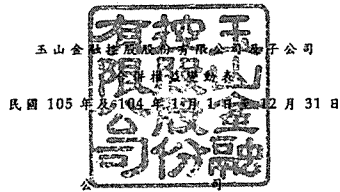 玉山金融控股股份有限公司及子公司
合併權益變動表
民國 105 年及 104 年 1 月 1 日至 12 月 31 日
公司
玉山金融控股股份有限公司